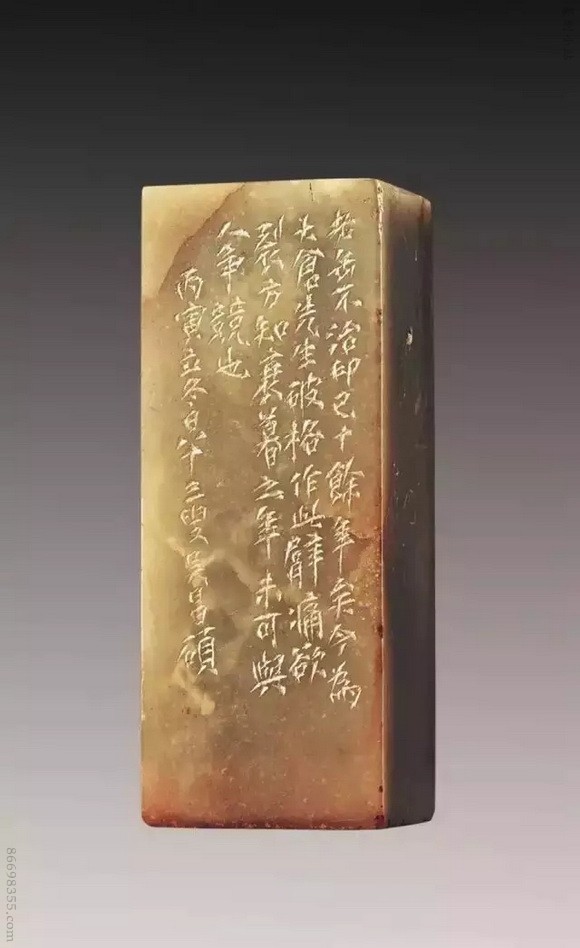 老缶不治印已十餘年矣今為
大倉先生破格作此臂痛欲
裂方知衰暮之年未可與
人爭競也
丙寅立冬八十三叟吳昌碩
86698355.com